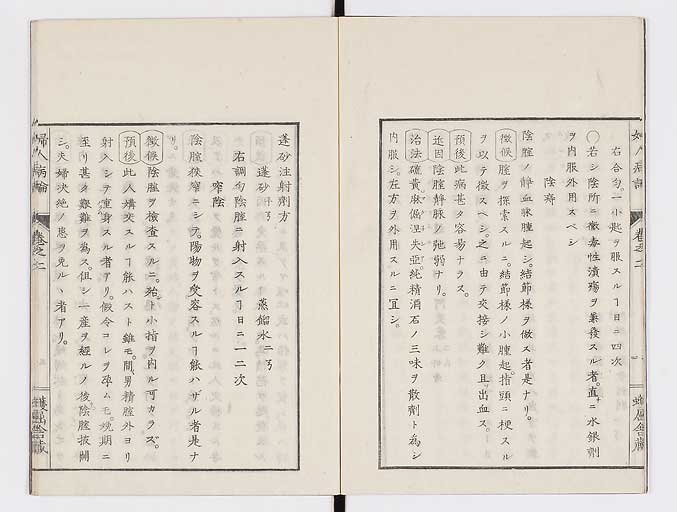 婦人病論
卷之二
蠖屈舍藏
右合匀。一小匙ヲ服スルヿ日ニ四次
○若シ陰所ニ黴毒性潰瘍ヲ兼發スル者。直ニ水銀劑
ヲ内服外用スベシ
陰痔
陰膣ノ靜血脉腫起シ。結節樣ヲ做ス者是ナリ。
徴候膣ヲ探索スルニ。結節樣ノ小腫起。指頭ニ梗スル
ヲ以テ徴スベシ。之ニ由テ交接シ難ク且出血ス。
預後此病甚タ容易ナラス。
近因陰膣靜脉ノ弛弱ナリ。
治法硫黄麻倔涅失亞。純精消石ノ三味ヲ散劑ト為シ
内服シ。左方ヲ外用スルニ宜シ。
蓬砂注射劑方
蓬砂
蒸餾水
右調匀陰膣ニ射入スルヿ日ニ一二次
窄陰
陰膣狹窄ニシテ。陽物ヲ受容スルヿ能ハザル者是ナ
リ。
徴候陰膣ヲ檢査スルニ。殆ト小指ヲ内ル可カラズ。
預後此人媾交スルヿ能ハスト雖モ。間男精膣外ヨリ
射入シテ重身スル者アリ。假令コレヲ孕ムモ。娩期ニ
至リ甚タ艱難ヲ為ス。但シ一産ヲ經ルノ後陰膣披開
シ。夫婦決絶ノ患ヲ免ルヽ者アリ。
婦人病論
卷之二
蠖屈舍藏